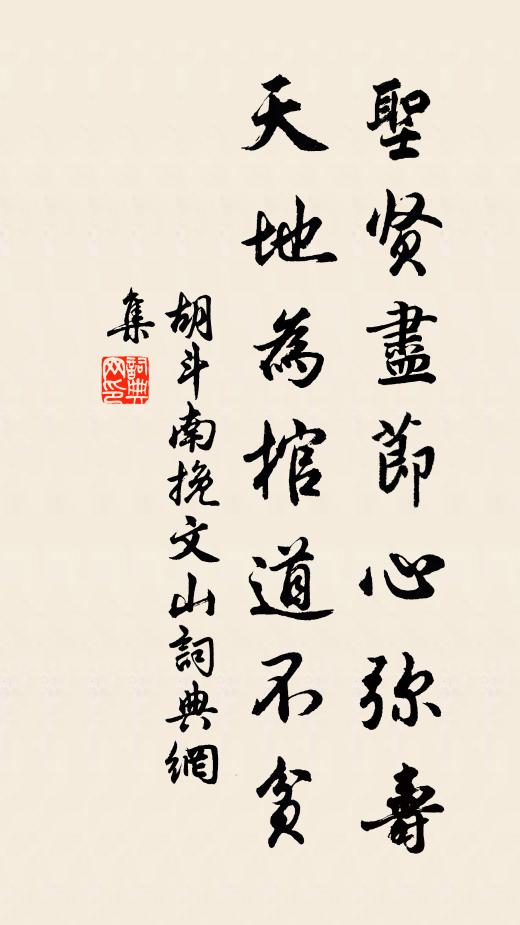 聖贤盡節心弥壽
天地為棺道不貧
胡斗南挽文山詞典網
集
詞典
网印